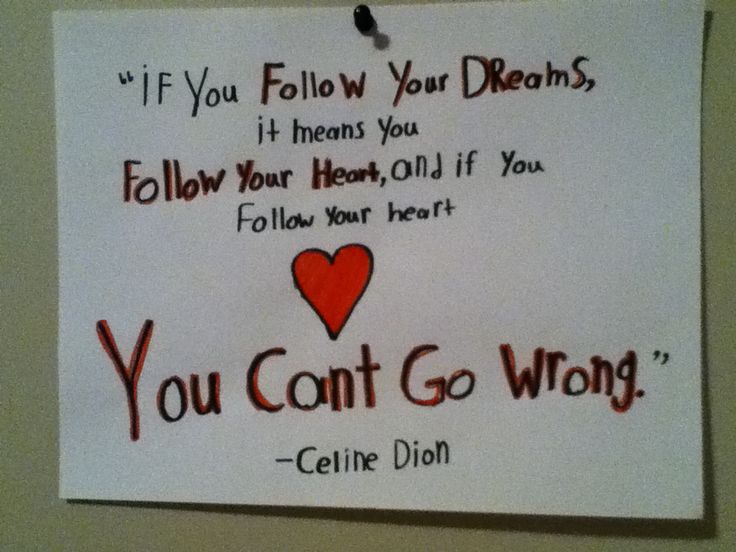 "iF You Follow Your DReams,
it means you
Follow Your Heart, and if you
Follow your heart
You Cant Go Wrong."
-Celine Dion